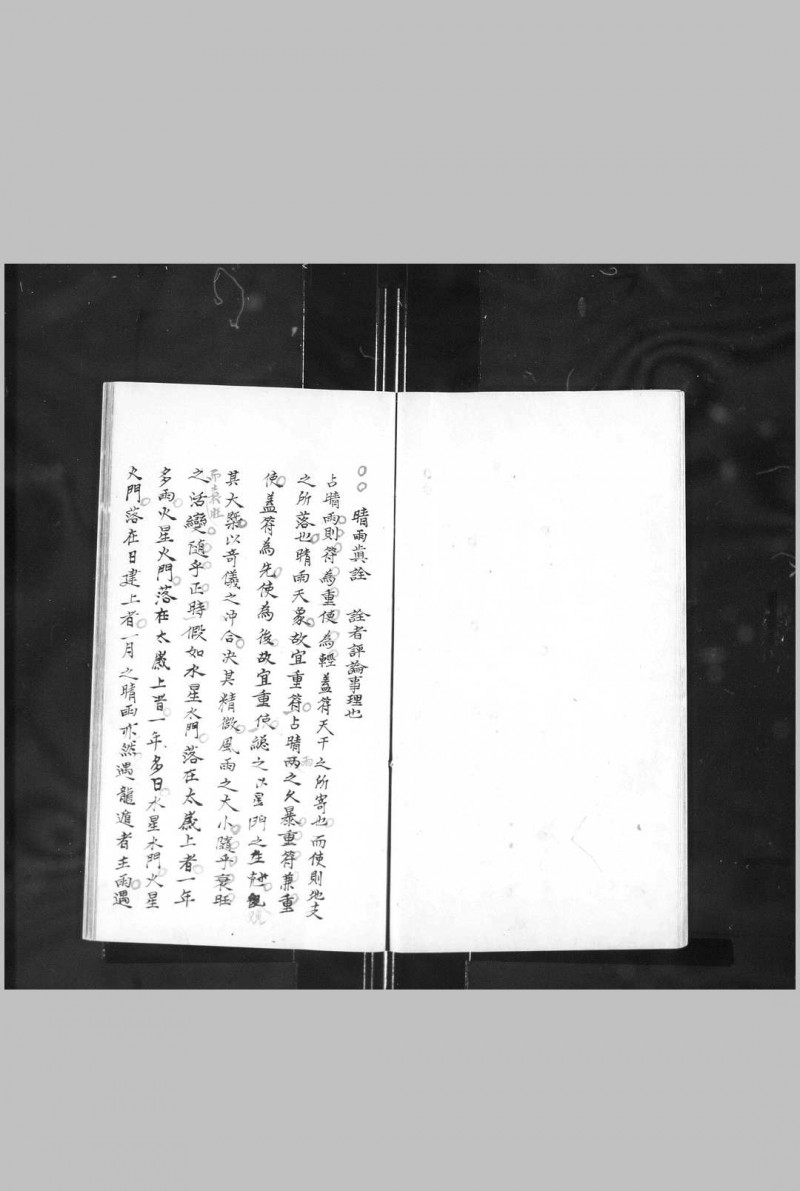 晴雨真詮　詮者評論事理也
占晴雨則符為重使為輕蓋符天干之所寄也而使則地支
之所落也晴雨天象故宜重符占晴雨之久暴重符兼重
使蓋符為先使為後故宜重使認之水星門之生尅
其大槩以奇儀之冲合决其精微風雨之大小隨乎衰旺
之活變隨乎正時假如水星水門落在太歲上者一年
多雨火星火門落在太歲上者一年多日水星水門火星
火門落在日建上者一月之晴雨亦然遇龍遁者主雨遇